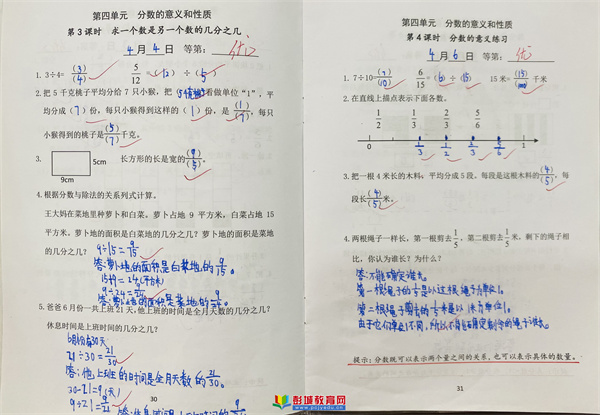 第四单元 分数的意义和性质
第3课时 求一个数是另一个数的几分之几
4月4日 等第：优
1. 3÷4=(3)/(4) 5/12=(5)÷(
2.把5千克桃子平均分给7只小猴，把(
)看做单位“1”，平
均分成(7)份，每只小猴得到这样的(1)份，是(1)/(7)，每只
小猴得到的桃子是(5)/(7)千克。
3. 5cm 长方形的长是宽的(9)/(5)。
9cm
4.根据分数与除法的关系列式计算。
王大妈在菜地里种萝卜和白菜。萝卜占地 9 平方米，白菜占地 15
平方米。萝卜地的面积是白菜地的几分之几？萝卜地的面积是菜地
的几分之几？ 9÷15=9/15
答:萝卜地的面积是白菜地的9/15。
15+9=24(平方米)
9÷24=9/24
答:萝卜地的面积是菜地的9/24。
5.爸爸6月份一共上班21天，他上班的时间是全月天数的几分之几？
休息时间是上班时间的几分之几？
6月份有30天
21÷30=21/30
答:他上班的时间是全月天数的21/30。
30-21=9(天)
9÷21=9/21
30
第四单元 分数的意义和性质
第4课时 分数的意义练习
4月6日 等第：优
1. 7÷10=(7)/(10) 6/15=(6)÷(15) 15米=(15)/(1000)千米
2.在直线上描点表示下面各数。
1/2 1/3 2/3 5/6
0 1/3 1/2 2/3 5/6 1
3.把一根4米长的木料，平均分成5段。每段是这根木料的(4)/(5)，每
段长(4)/(5)米。
4.两根绳子一样长，第一根剪去1/5，第二根剪去1/5米，剩下的绳子相
比，你认为谁长？为什么？
答:不能确定谁长。
第一根绳子的1/5是以这根绳子为单位1。
第二根绳子剪去的1/5米是以1米为单位1。
由于它们单位1不同，所以不能确定剩余的绳子谁长。
提示：分数既可以表示两个量之间的关系，也可以表示具体的数量。
31
彭城教育网
www.pcjyedu.cn